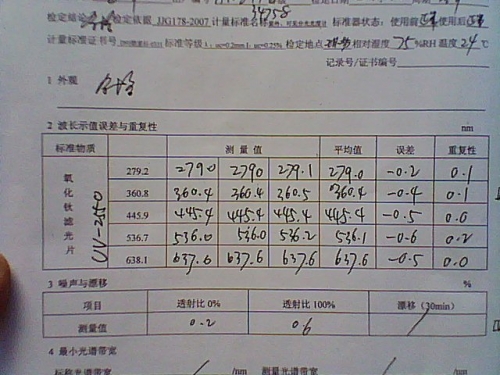 34758
检定结论 合格 检定依据 JJG178-2007 计量标准名称 标准器状态:使用前正常使用后正常
计量标准证书号 标准等级 检定地点 相对湿度 75 %RH 温度 24 ℃
记录号/证书编号
1 外观 合格
2 波长示值误差与重复性 nm
标准物质 测量值 平均值 误差 重复性
氧化钬滤光片 UV-2550
279.2 279.0 279.0 279.1 279.0 -0.2 0.1
360.8 360.4 360.4 360.5 360.4 -0.4 0.1
445.9 445.4 445.4 445.4 445.4 -0.5 0.0
536.7 536.0 536.0 536.2 536.1 -0.6 0.2
638.1 637.6 637.6 637.6 637.6 -0.5 0.0
3 噪声与漂移 %
项目 透射比 0% 透射比 100% 漂移(30min)
测量值 0.2 0.6 /
4 最小光谱带宽
标称光谱带宽 /nm 测量光谱带宽 /nm